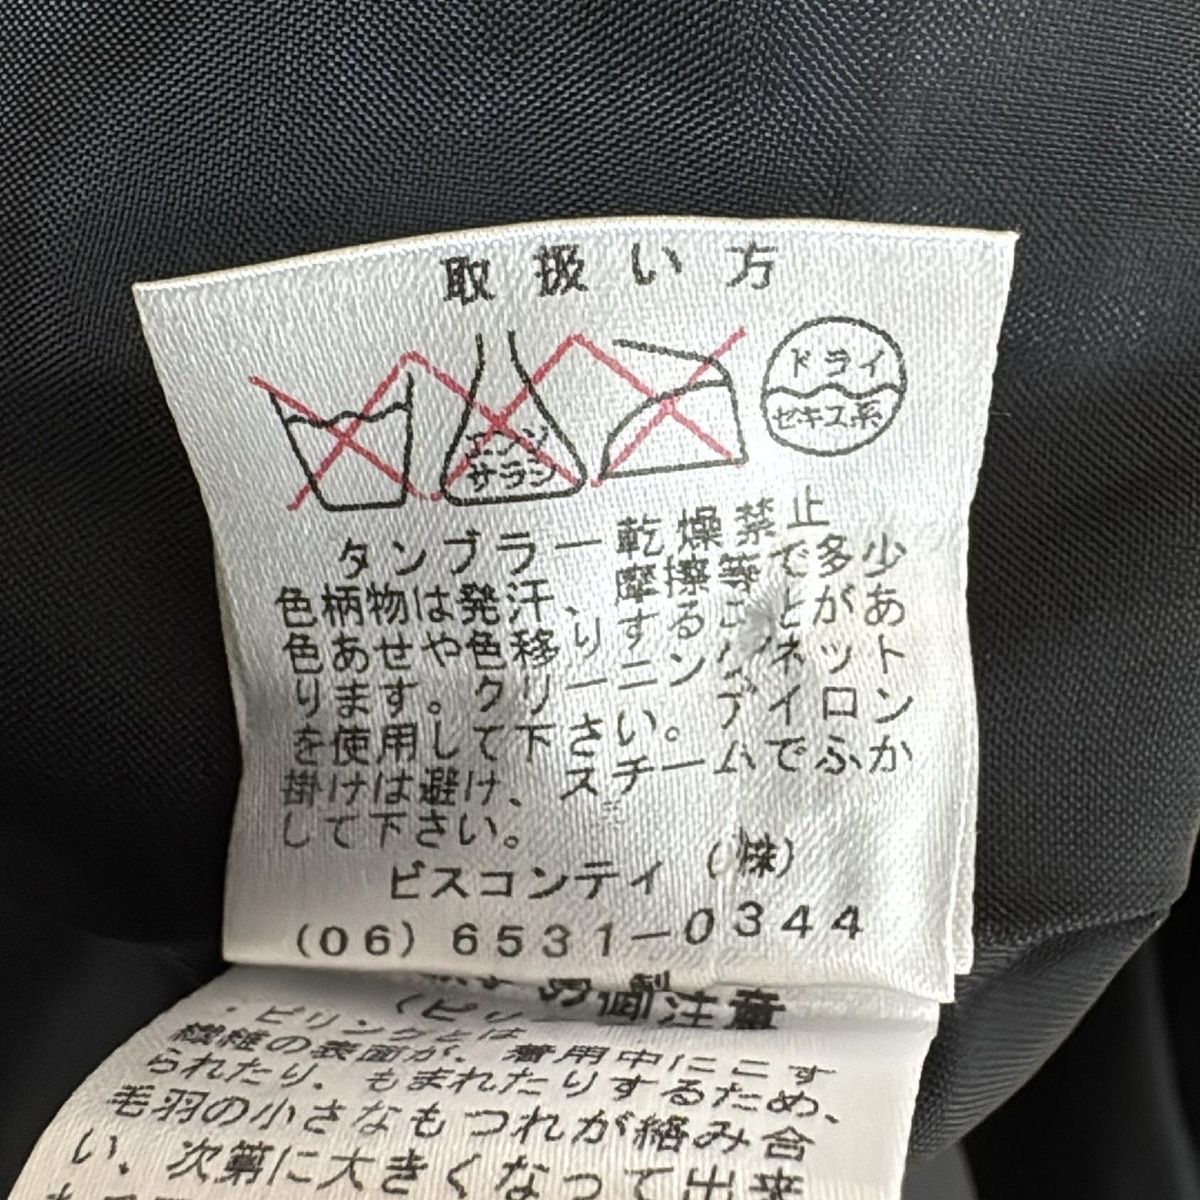 取扱い方
エンソ サラシ
ドライ
セキユ系
タンブラー乾燥禁止
色柄物は発汗、摩擦等で多少
色あせや色移りすることがあ
ります。クリーニングネット
を使用して下さい。アイロン
掛けは避け、スチームでふか
して下さい。
ビスコンティ(株)
(06)6531-0344
注意
(ピリ
・ピリングとは
繊維の表面が、着用中にこす
られたり、もまれたりするため、
毛羽の小さなもつれが絡み合
い、次第に大きくなって出来